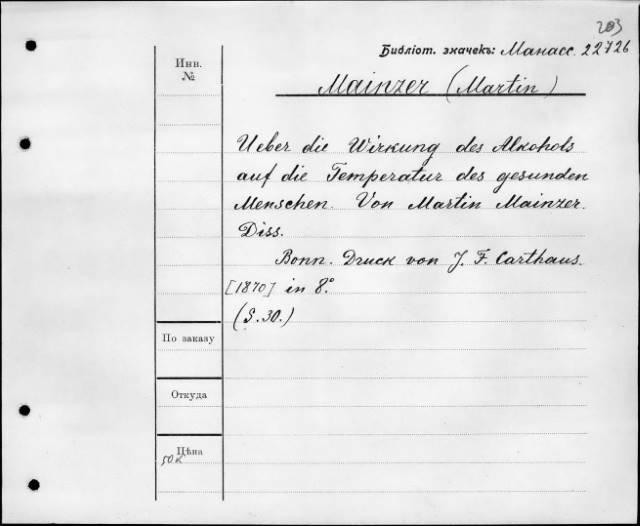 203
Библіот. значекъ: Манасс. 22726
Инв.
№
Mainzer (Martin)
Ueber die Wirkung des Alkohols
auf die Temperatur des gesunden
Menschen. Von Martin Mainzer.
Diss.
Bonn. Druck von J. F. Carthaus.
[1870] in 8°
(S. 30.)
По заказу
Откуда
Цѣна
50к